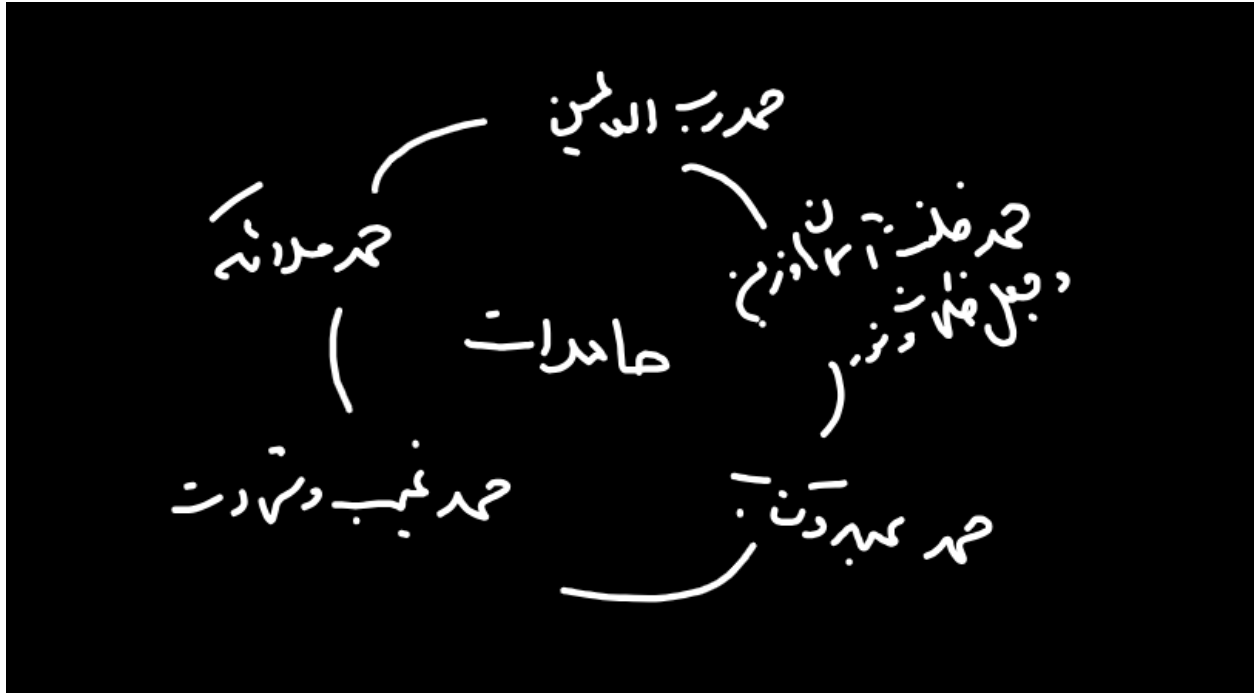 حمد رب العالمین
حمد خلقت آسمان و زمین
و جعل ظلمات و نور
حمد عبد و کتاب
حمد غیب و شهادت
حمد ملائکه
حامدات